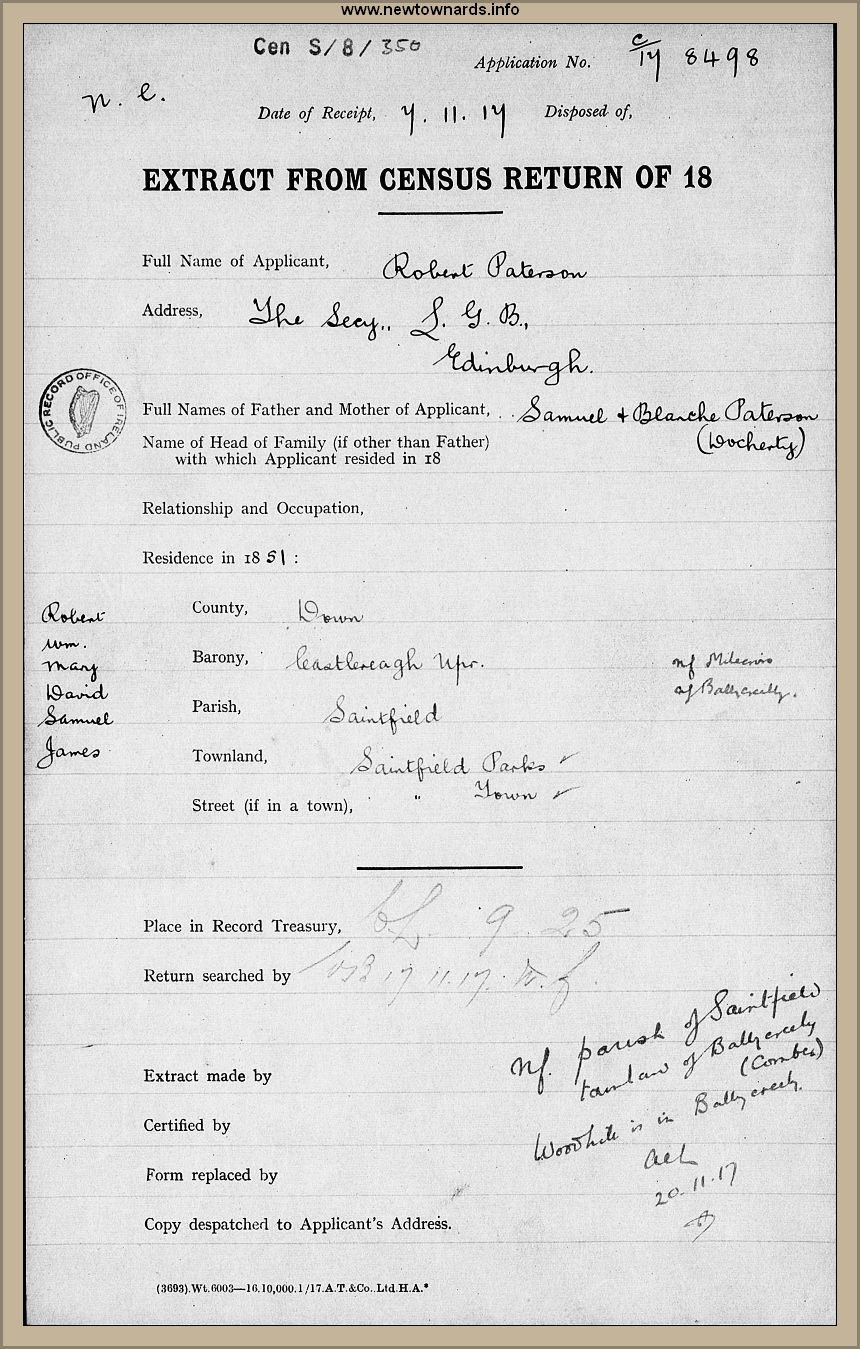 www.newtownards.info
Cen S/8/350
Application No. C/17 8498
n. e.
Date of Receipt, 7. 11. 17 Disposed of,
EXTRACT FROM CENSUS RETURN OF 18
Full Name of Applicant, Robert Paterson
Address, The Secy., L. G. B.,
Edinburgh.
PUBLIC RECORD OFFICE OF IRELAND
Full Names of Father and Mother of Applicant, Samuel + Blanche Paterson
(Docherty)
Name of Head of Family (if other than Father)
with which Applicant resided in 18
Relationship and Occupation,
Residence in 1851:
Robert
Wm.
Mary
David
Samuel
James
County, Down
Barony, Castlereagh Upr.
nf
Parish, Saintfield
Townland, Saintfield Parks ✓
Street (if in a town), " Town ✓
Place in Record Treasury, 9 25
Return searched by 17 11.17.
Nf. parish of Saintfield
of Ballycreely
(Comber)
is in Ballycreely.
20.11.17
Extract made by
Certified by
Form replaced by
Copy despatched to Applicant's Address.
(3693).Wt.6003—16.10,000.1/17.A.T.&Co..Ltd.H.A.*